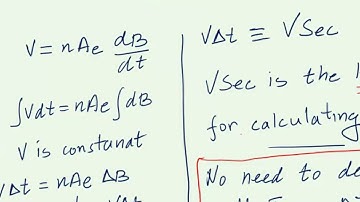 V = nAe dB/dt
∫Vdt = nAe∫dB
V is constanat
VΔt = nAe ΔB
VΔt ≡ VSec
VSec is the
for calculating
No need to de